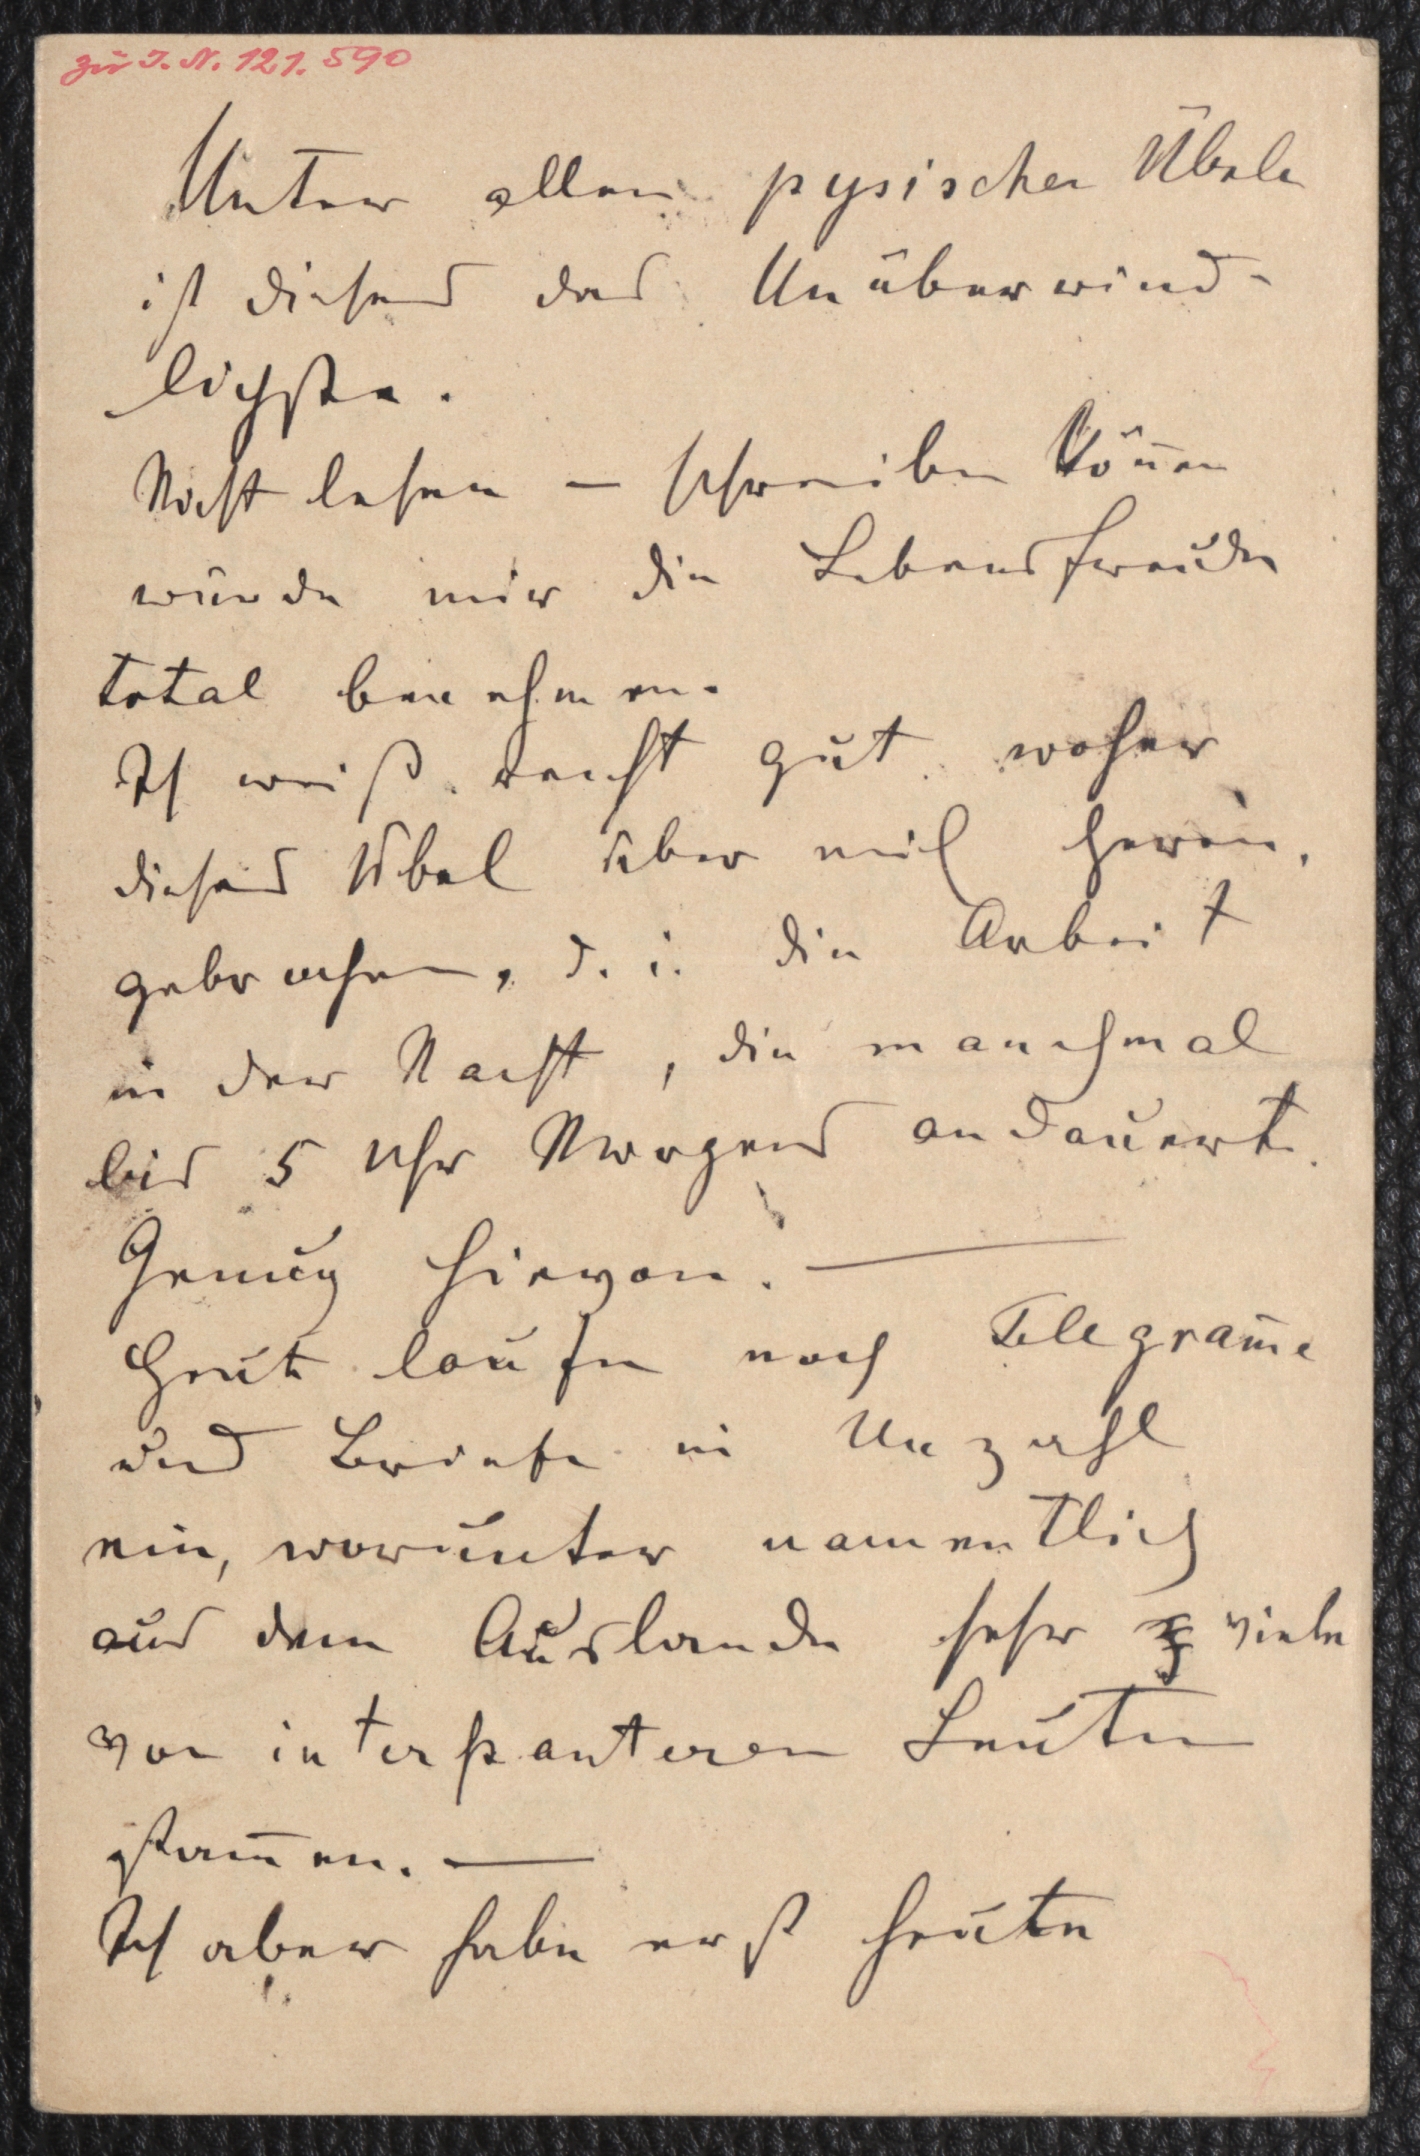 zu I. N. 121.590
Unter allen pysischen Übeln
ist dieses das Unüberwind-
lichste.
Nicht lesen – schreiben könen
würde mir die Lebensfreude
total benehmen.
Ich weiß recht gut woher
dieses Übel über mich herein,
gebrochen, d. i. die Arbeit
in der Nacht, die manchmal
bis 5 Uhr Morgens andauert.
Genug hievon. —
Heute laufen noch Telegrame
und Briefe in Unzahl
ein, worunter namentlich
aus dem Auslande sehr viele
von interssanteren Leuten
stamen. —
Ich aber habe erst heute